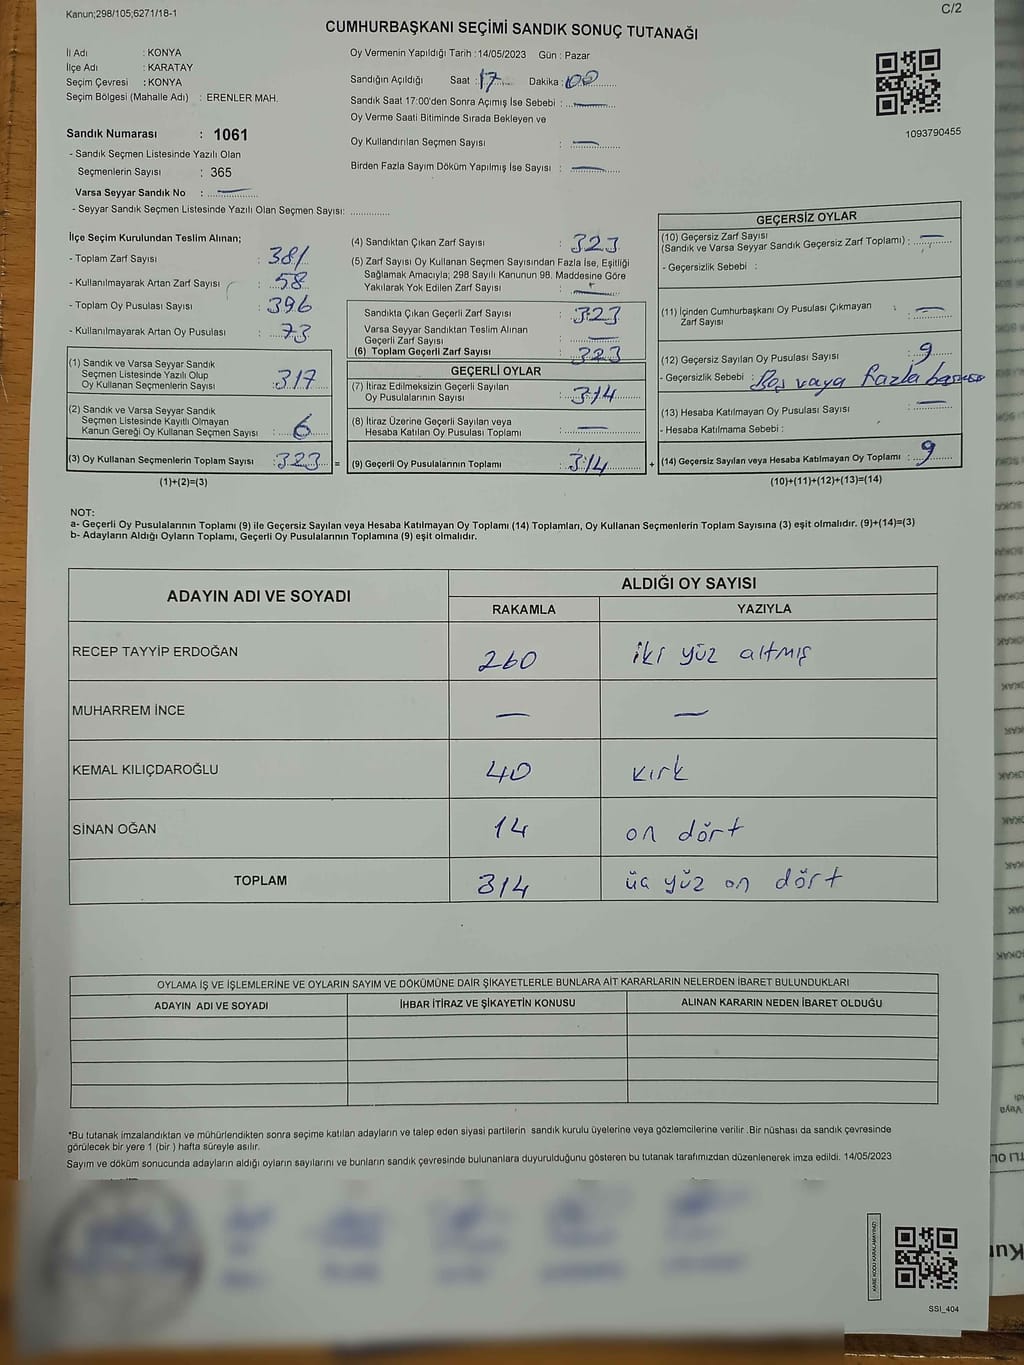 Kanun;298/105;6271/18-1
C/2
CUMHURBAŞKANI SEÇİMİ SANDIK SONUÇ TUTANAĞI
İl Adı : KONYA
İlçe Adı : KARATAY
Seçim Çevresi : KONYA
Seçim Bölgesi (Mahalle Adı) : ERENLER MAH.
Sandık Numarası : 1061
- Sandık Seçmen Listesinde Yazılı Olan
Seçmenlerin Sayısı : 365
Varsa Seyyar Sandık No : —
- Seyyar Sandık Seçmen Listesinde Yazılı Olan Seçmen Sayısı: ..............
Oy Vermenin Yapıldığı Tarih :14/05/2023 Gün : Pazar
Sandığın Açıldığı Saat : 17 Dakika : 00
Sandık Saat 17:00'den Sonra Açımış İse Sebebi : —
Oy Verme Saati Bitiminde Sırada Bekleyen ve
Oy Kullandırılan Seçmen Sayısı : —
Birden Fazla Sayım Döküm Yapılmış İse Sayısı : —
1093790455
İlçe Seçim Kurulundan Teslim Alınan;
- Toplam Zarf Sayısı : 381
- Kullanılmayarak Artan Zarf Sayısı : 58
- Toplam Oy Pusulası Sayısı : 396
- Kullanılmayarak Artan Oy Pusulası : 73
(1) Sandık ve Varsa Seyyar Sandık
Seçmen Listesinde Yazılı Olup
Oy Kullanan Seçmenlerin Sayısı : 317
(2) Sandık ve Varsa Seyyar Sandık
Seçmen Listesinde Kayıtlı Olmayan
Kanun Gereği Oy Kullanan Seçmen Sayısı : 6
(3) Oy Kullanan Seçmenlerin Toplam Sayısı : 323 =
(1)+(2)=(3)
(4) Sandıktan Çıkan Zarf Sayısı : 323
(5) Zarf Sayısı Oy Kullanan Seçmen Sayısından Fazla İse, Eşitliği
Sağlamak Amacıyla; 298 Sayılı Kanunun 98. Maddesine Göre
Yakılarak Yok Edilen Zarf Sayısı : —
Sandıkta Çıkan Geçerli Zarf Sayısı : 323
Varsa Seyyar Sandıktan Teslim Alınan
Geçerli Zarf Sayısı : —
(6) Toplam Geçerli Zarf Sayısı : 323
GEÇERLİ OYLAR
(7) İtiraz Edilmeksizin Geçerli Sayılan
Oy Pusulalarının Sayısı : 314
(8) İtiraz Üzerine Geçerli Sayılan veya
Hesaba Katılan Oy Pusulası Toplamı : —
(9) Geçerli Oy Pusulalarının Toplamı : 314 +
GEÇERSİZ OYLAR
(10) Geçersiz Zarf Sayısı
(Sandık ve Varsa Seyyar Sandık Geçersiz Zarf Toplamı) : —
- Geçersizlik Sebebi :
(11) İçinden Cumhurbaşkanı Oy Pusulası Çıkmayan
Zarf Sayısı : —
(12) Geçersiz Sayılan Oy Pusulası Sayısı : 9
- Geçersizlik Sebebi : Boş vaya fazla
(13) Hesaba Katılmayan Oy Pusulası Sayısı : —
- Hesaba Katılmama Sebebi :
(14) Geçersiz Sayılan veya Hesaba Katılmayan Oy Toplamı : 9
(10)+(11)+(12)+(13)=(14)
NOT:
a- Geçerli Oy Pusulalarının Toplamı (9) ile Geçersiz Sayılan veya Hesaba Katılmayan Oy Toplamı (14) Toplamları, Oy Kullanan Seçmenlerin Toplam Sayısına (3) eşit olmalıdır. (9)+(14)=(3)
b- Adayların Aldığı Oyların Toplamı, Geçerli Oy Pusulalarının Toplamına (9) eşit olmalıdır.
ADAYIN ADI VE SOYADI ALDIĞI OY SAYISI
RAKAMLA YAZIYLA
RECEP TAYYİP ERDOĞAN 260 iki yüz altmış
MUHARREM İNCE — —
KEMAL KILIÇDAROĞLU 40 kırk
SİNAN OĞAN 14 on dört
TOPLAM 314 üç yüz on dört
OYLAMA İŞ VE İŞLEMLERİNE VE OYLARIN SAYIM VE DÖKÜMÜNE DAİR ŞİKAYETLERLE BUNLARA AİT KARARLARIN NELERDEN İBARET BULUNDUKLARI
ADAYIN ADI VE SOYADI İHBAR İTİRAZ VE ŞİKAYETİN KONUSU ALINAN KARARIN NEDEN İBARET OLDUĞU
*Bu tutanak imzalandıktan ve mühürlendikten sonra seçime katılan adayların ve talep eden siyasi partilerin sandık kurulu üyelerine veya gözlemcilerine verilir .Bir nüshası da sandık çevresinde
görülecek bir yere 1 (bir ) hafta süreyle asılır.
Sayım ve döküm sonucunda adayların aldığı oyların sayılarını ve bunların sandık çevresinde bulunanlara duyurulduğunu gösteren bu tutanak tarafımızdan düzenlenerek imza edildi. 14/05/2023
KARE KODU KARALAMAYINIZ!
SSI_404